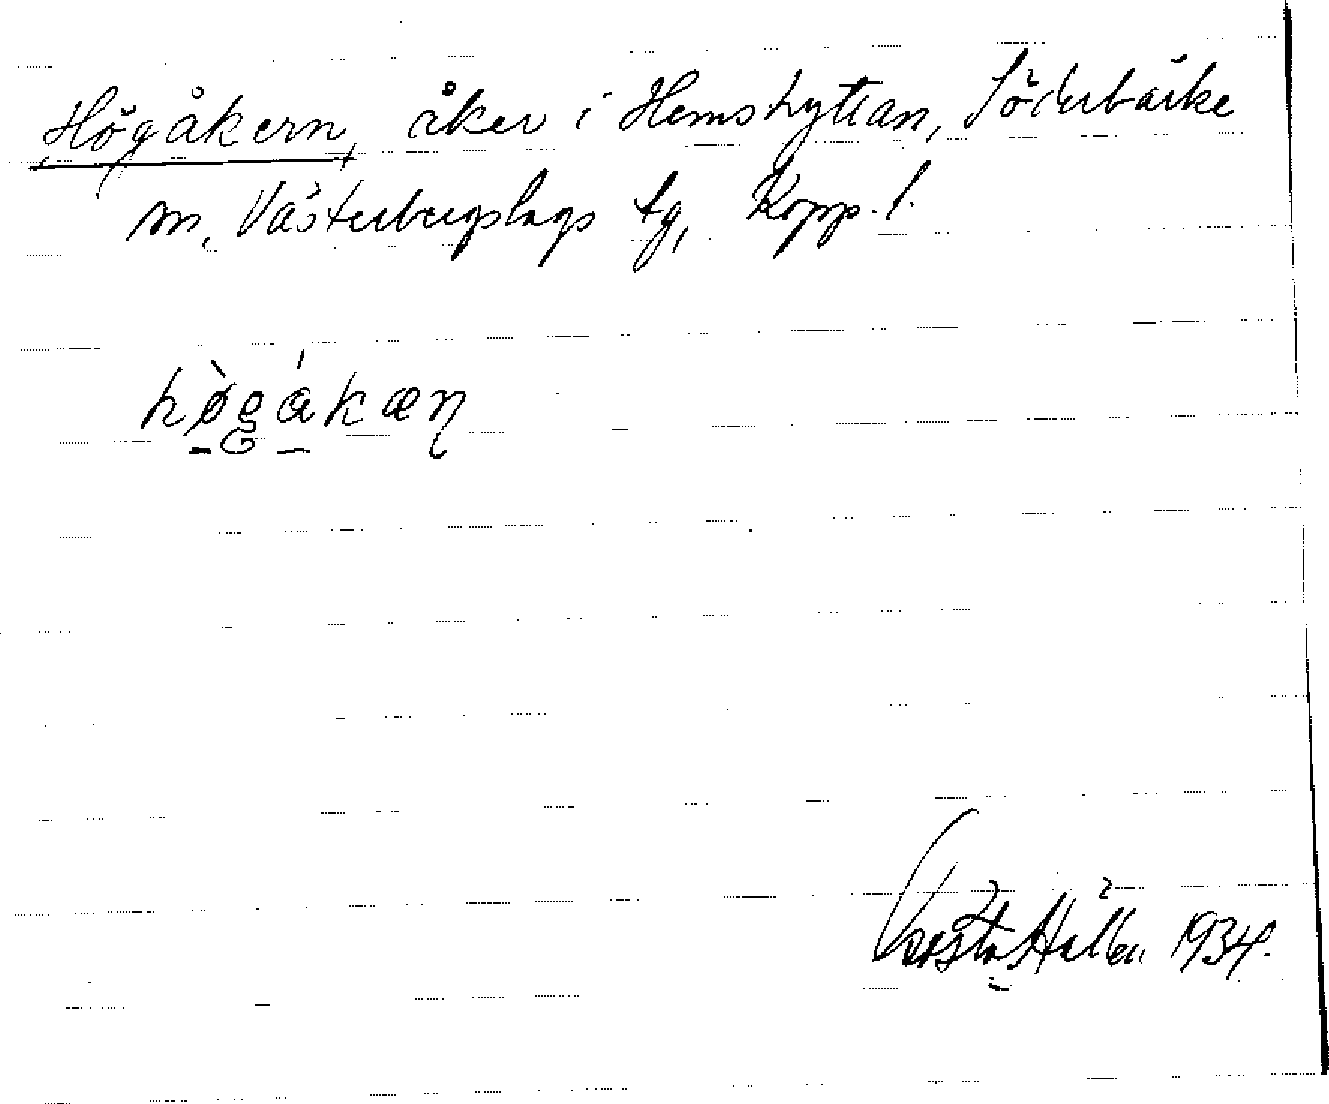 Högåkern, åker i Hemshyttan, Söderbärke
sn, Västerbergslags tg, Kopp. l.
hø̀gåkæɳ
Gösta 1934.